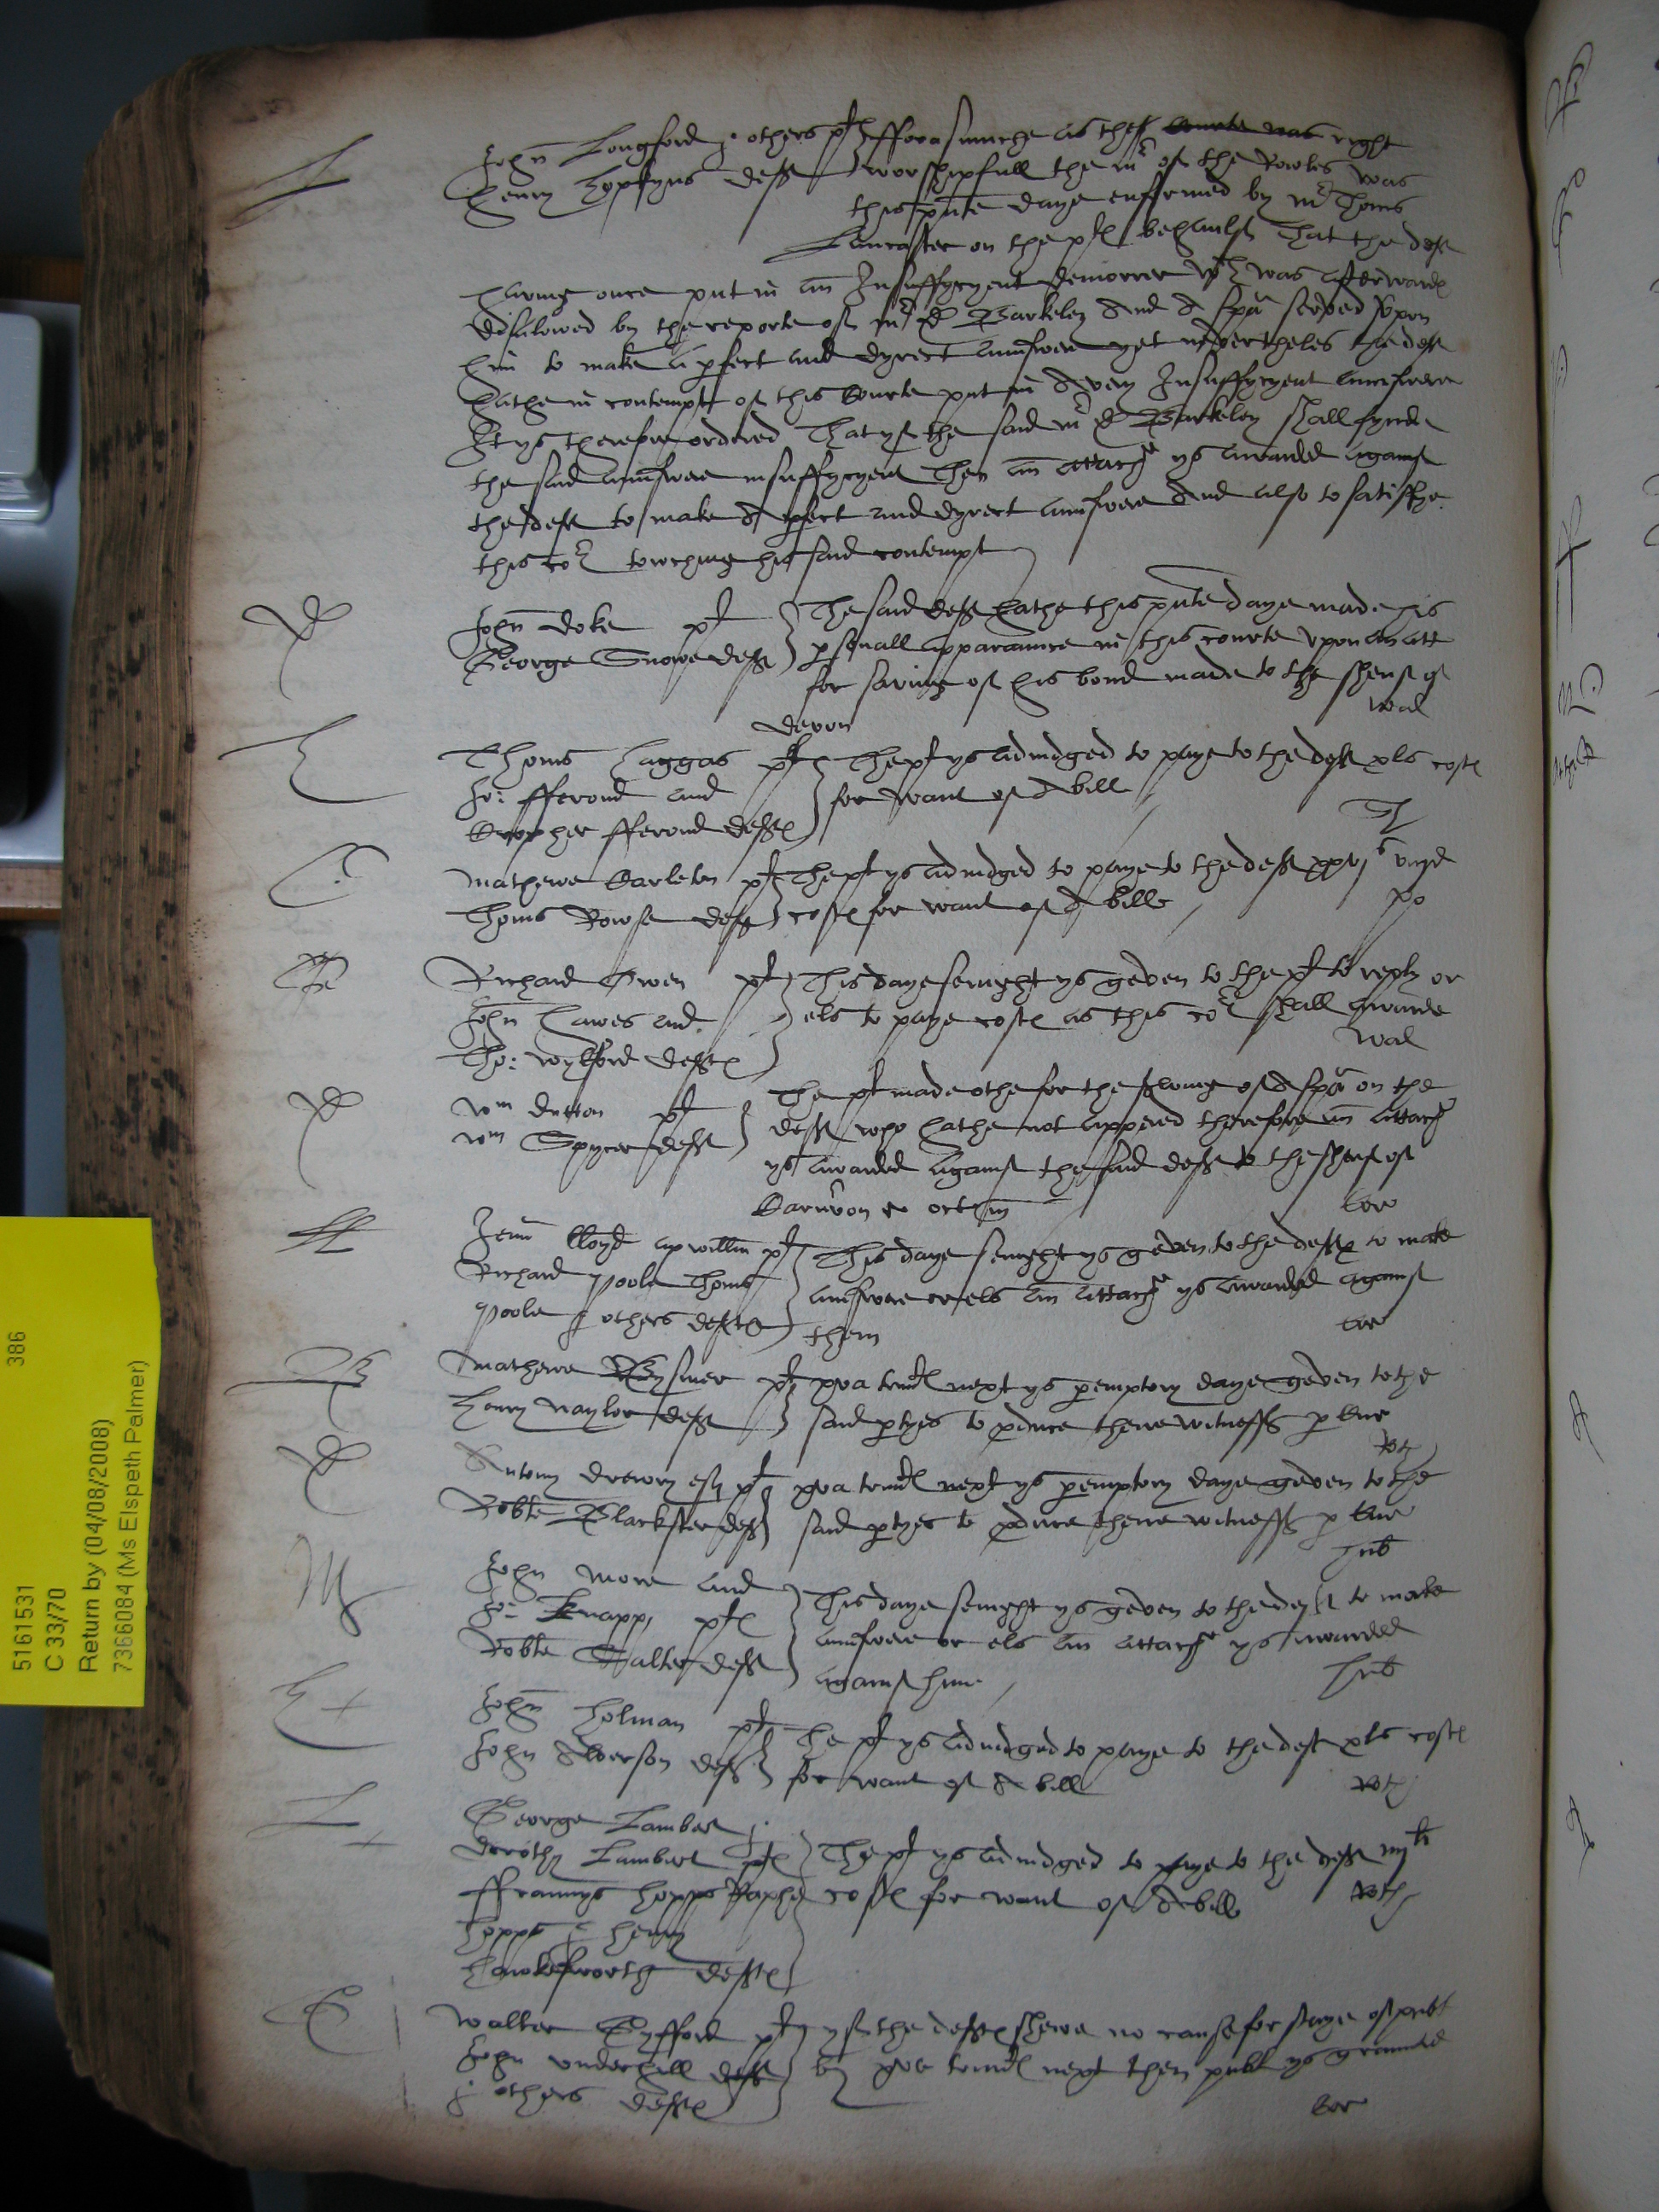 John Longford & others plf fforasmuche as thes courte was right
Henry hopkyns deff worshipfull the mr of the Rowles was
this pnte daye enformed by mr Thoms
Lancaster on the plf behaulf That the deft
having once put in an Insuffycyent demorrer wch was afterwardes
disalowed by the reporte of mr D Barkeley And A spa served vpon
him to make a perfect and dyrect aunswere yet nevertheles the deft
hathe in contempt of this Courte put in A very Insuffycyent aunswere
It ys therefore ordered That yf the said mr D Barkeley shall fynde
the said aunswere insuffycyent Then an attacht ys awarded against
the deft to make A pfect and dyrect aunswere And also to satisfye
this cort towching his said contempt
John doke plf The said deff hathe this pnte daye made his
George Snowe deff psonall apparaunce in this courte vpon an att
for saving of his bond made to the sheriff of
devon wal
Thoms haggas plf The plf ys adiudged to paye to the deff xls costes
Jo: fferond and for want of A bill
Cristopher fferond deffes
Mathewe Carleton plf The plf ys adiudged to paye to the deff xxvjs viijd
Thoms Rowse deff costes for want of A bill
Richard Owen plf This daye senight ys geven to the plf to reply or
John hawes and els to paye costes as this cort shall awarde
Tho: wylford deffes wal
Wm dutton plf The plf made othe for the serving of A spa on the
Wm Spycer deff deff who hathe not appered therefore an attacht
ys awarded against the said deff to the sherif of
Carnvon
lloyd ap willm plf This daye senight ys geven to the deffes to make
Richard poole Thoms aunswere or els an attacht ys awarded against
poole & others deffes them
Mathewe plf xva trinit next ys pemptory daye geven to the
henry naylor deff said ptyes to pduce there witnesses
Antony drewry esq plf xva trinit next ys pemptory daye geven to the
Robte Blackster deff said ptyes to pduce there witnesses
John More and This daye senight ys geven to the deft to make
Jo: Knapp plf aunswere or els an attacht ys awarded
Robte Salter deff against him
John holman plf The plf ys adiudged to paye to the deft xls costes
John Alverson deff for want of A bill
George Lambert &
dorothy Lambert plf The plf ys adiudged to paye to the deff iiijli
ffrauncys hoppe Raphe costes for want of A bill
hoppe & henry
hawkesworth deffes
Walter Gyfford plf yf the deffes shewe no cause for staye of publ
John vnderhill deff by xva trinit next then publ ys graunted
& others deffes
5161531 386
C 33/70
Return by (04/08/2008)
7366084 (Ms Elspeth Palmer)